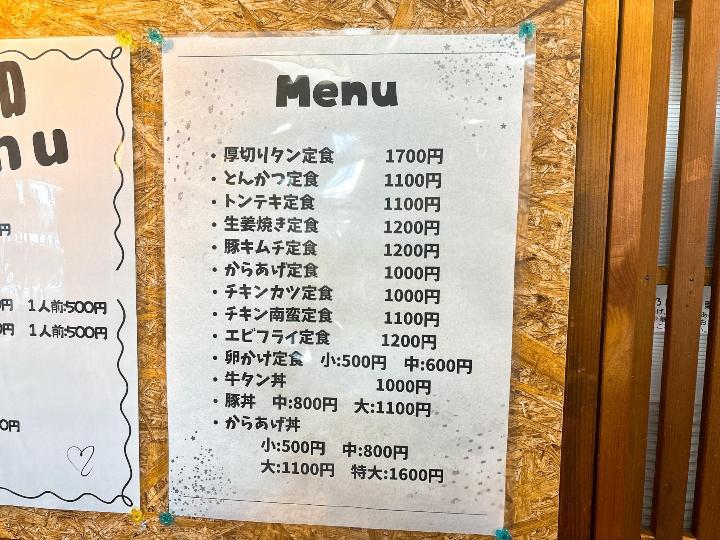 nu
円
円 1人前:500円
円 1人前:500円
0円
Menu
・厚切りタン定食 1700円
・とんかつ定食 1100円
・トンテキ定食 1100円
・生姜焼き定食 1200円
・豚キムチ定食 1200円
・からあげ定食 1000円
・チキンカツ定食 1000円
・チキン南蛮定食 1100円
・エビフライ定食 1200円
・卵かけ定食 小:500円 中:600円
・牛タン丼 1000円
・豚丼 中:800円 大:1100円
・からあげ丼
小:500円 中:800円
大:1100円 特大:1600円